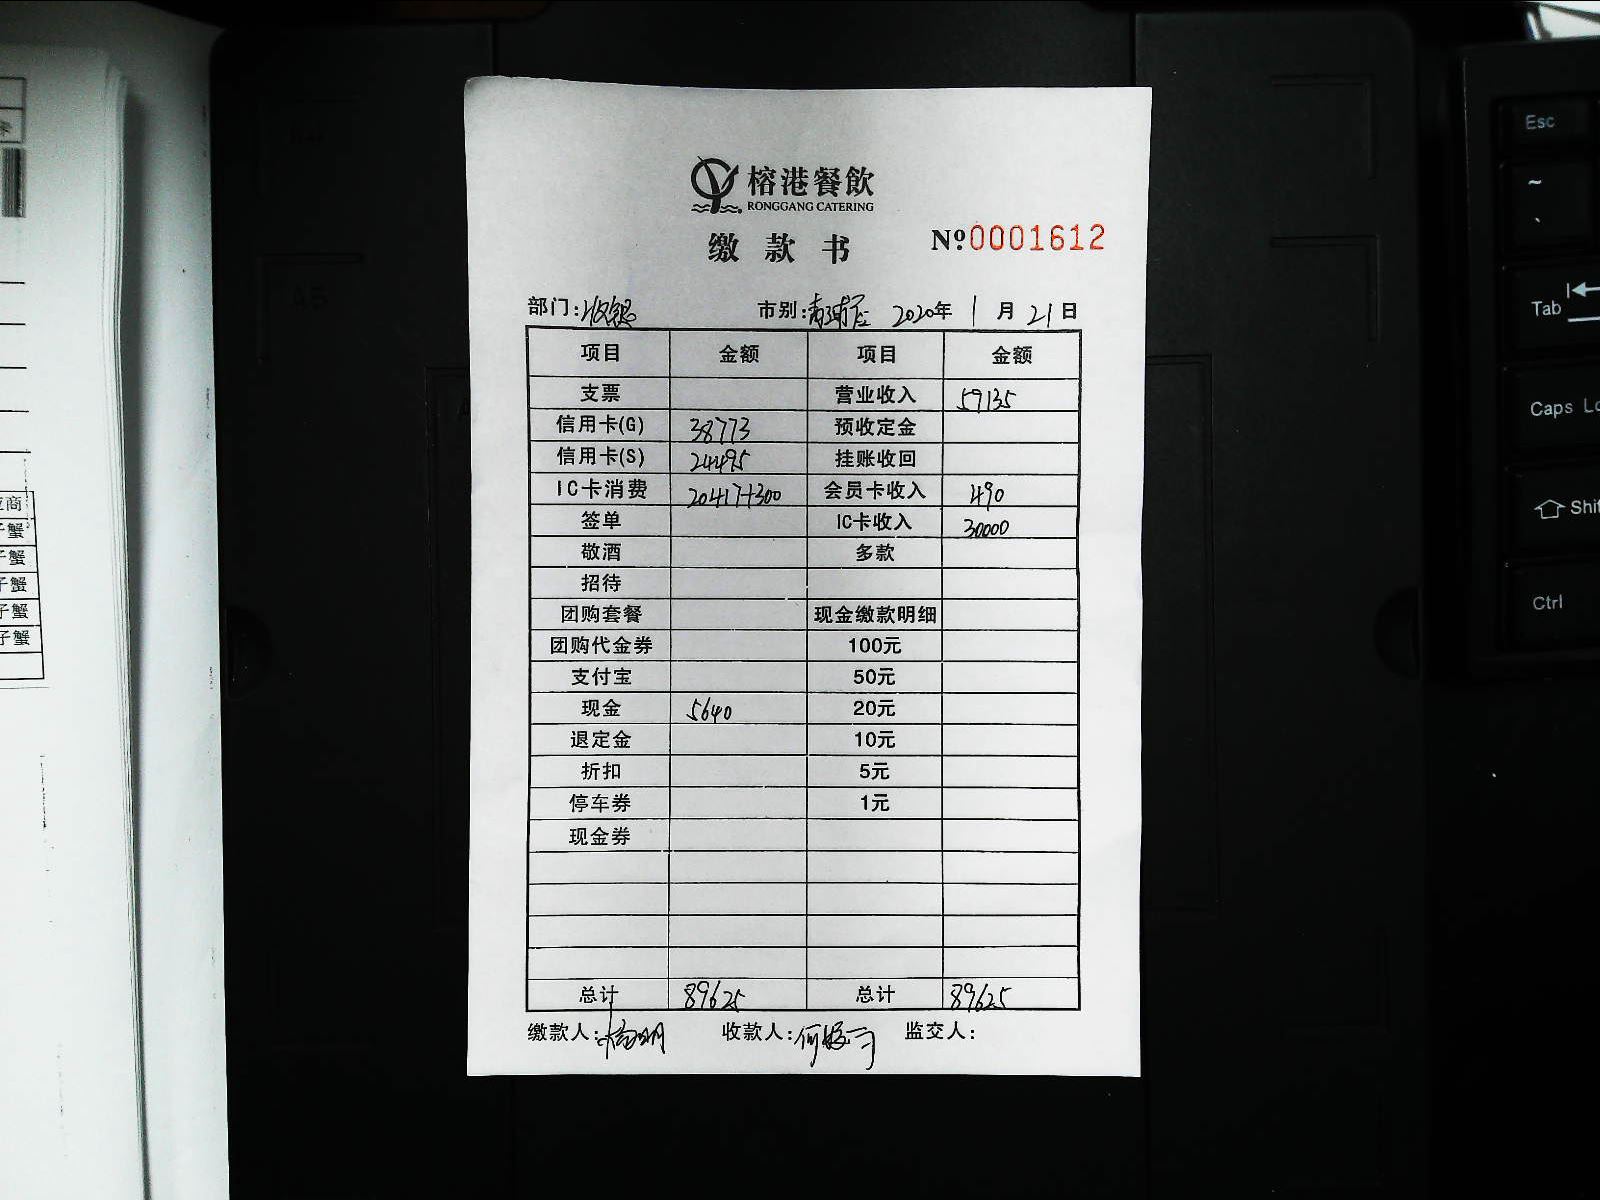 榕港餐飲
RONGGANG CATERING
缴款书
Nº0001612
部门:收银 市别:青浦店 2020年 1 月 21 日
项目 金额 项目 金额
支票 营业收入 59135
信用卡(G) 38773 预收定金
信用卡(S) 24495 挂账收回
IC卡消费 20417+300 会员卡收入 490
签单 IC卡收入 30000
敬酒 多款
招待
团购套餐 现金缴款明细
团购代金券 100元
支付宝 50元
现金 5640 20元
退定金 10元
折扣 5元
停车券 1元
现金券
总计 89625 总计 89625
缴款人: 收款人: 监交人:
商
子蟹
子蟹
子蟹
子蟹
子蟹
A5
Esc
~
`
Tab
Caps Lo
Shif
Ctrl